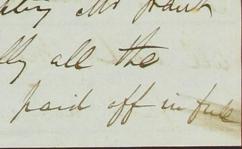 Mr Grant
all the
paid off in full